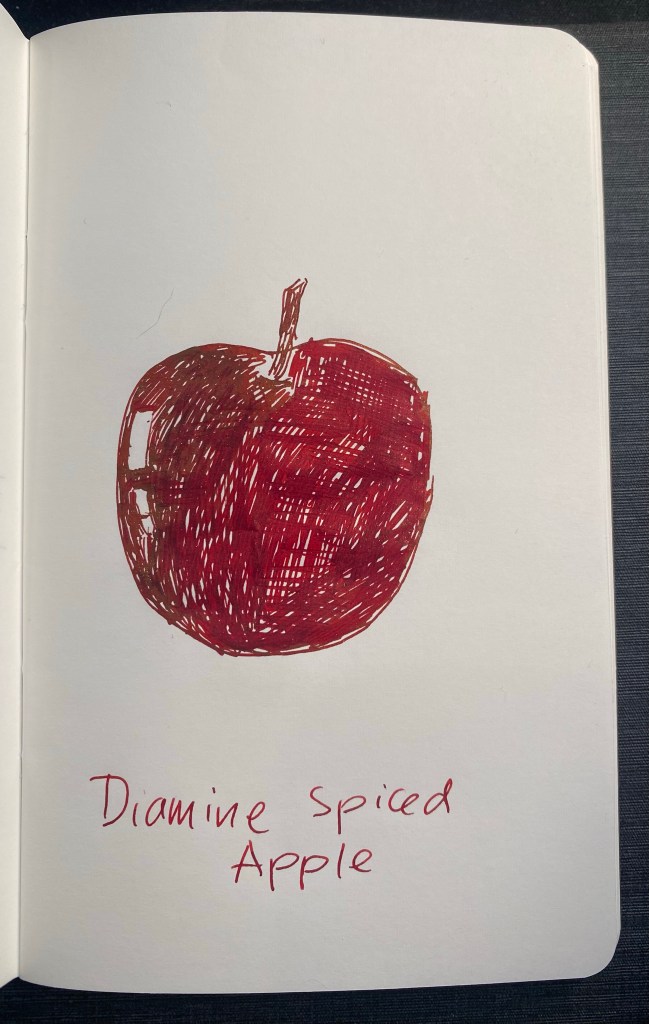 Diamine Spiced
Apple